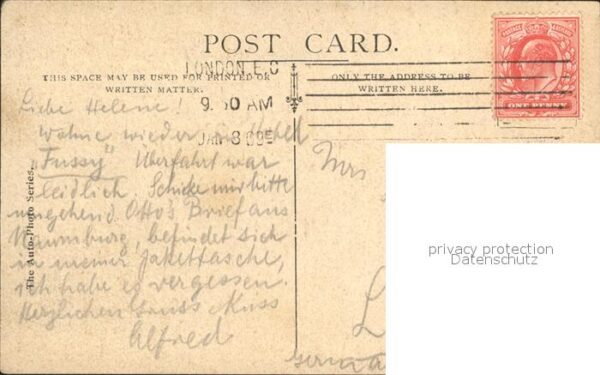 POST CARD.
LONDON E.C
THIS SPACE MAY BE USED FOR PRINTED OR
WRITTEN MATTER.
ONLY THE ADDRESS TO BE
WRITTEN HERE.
POSTAGE REVENUE
ONE PENNY
AM
JAN 8
Liebe Helene!
wohne wieder
"Fussy" Überfahrt war
leidlich. Schicke mir bitte
umgehend Otto's Brief aus
Naumburg, befindet sich
in meiner Jakettasche,
ich habe es vergessen.
Herzlichen Gruss Kuss
Alfred
The Auto-Photo Series.
Mrs
privacy protection
Datenschutz